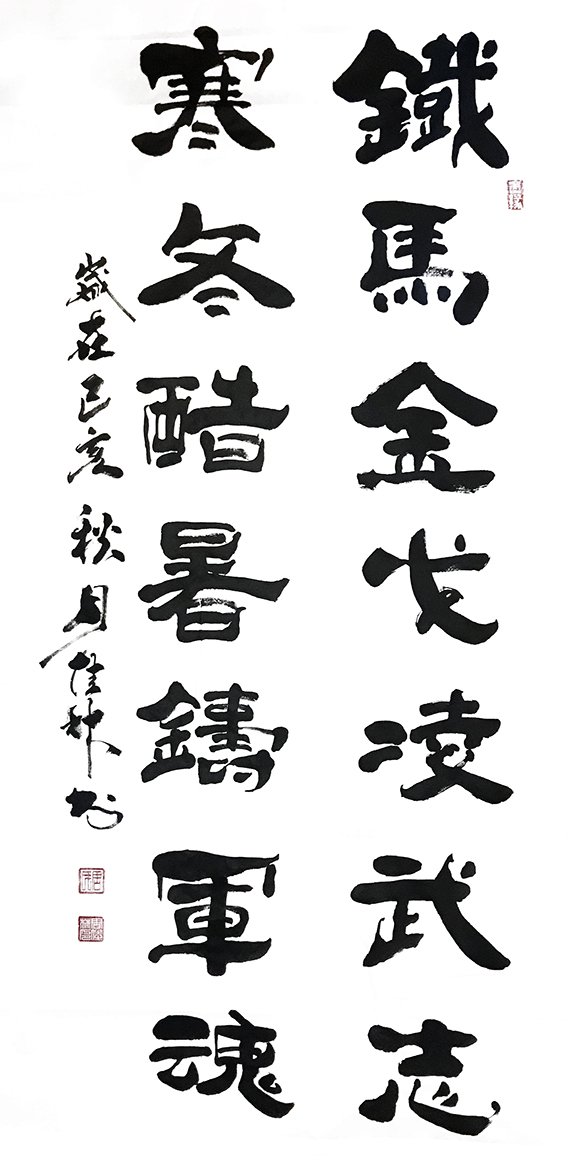 鐵馬金戈凌武志
寒冬酷暑鑄軍魂
歲在己亥秋月佳林書